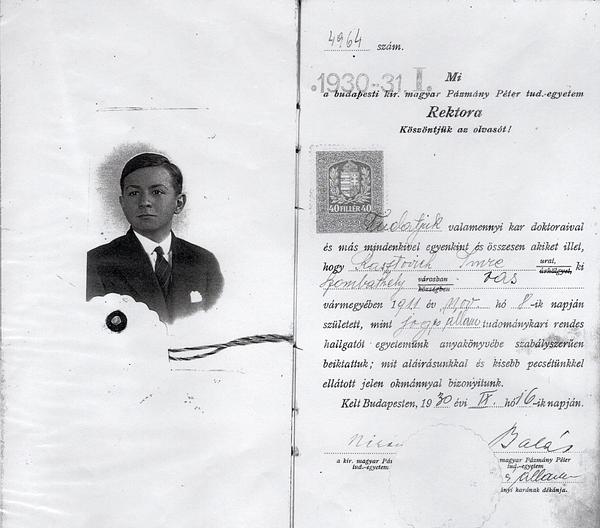 4964 szám.
1930-31 I.
Mi
a budapesti kir. magyar Pázmány Péter tud.-egyetem
Rektora
Köszöntjük az olvasót!
40 FILLÉR 40
Tudatjuk valamennyi kar doktoraival
és más mindenkivel egyenkint és összesen akiket illet,
hogy Imre urat, úrhölgyet, ki
Szombathely városban községben Vas
vármegyében 1911 év nov. hó 8-ik napján
született, mint jog és állam tudománykari rendes
hallgatót egyetemünk anyakönyvébe szabályszerüen
beiktattuk; mit aláirásunkkal és kisebb pecsétünkkel
ellátott jelen okmánnyal bizonyitunk.
Kelt Budapesten, 1930 évi IX. hó 16-ik napján.
Balás
a kir. magyar Páz
tud.-egyetem
magyar Pázmány Péter
tud.-egyetem
és állam
ányi karának dékánja.